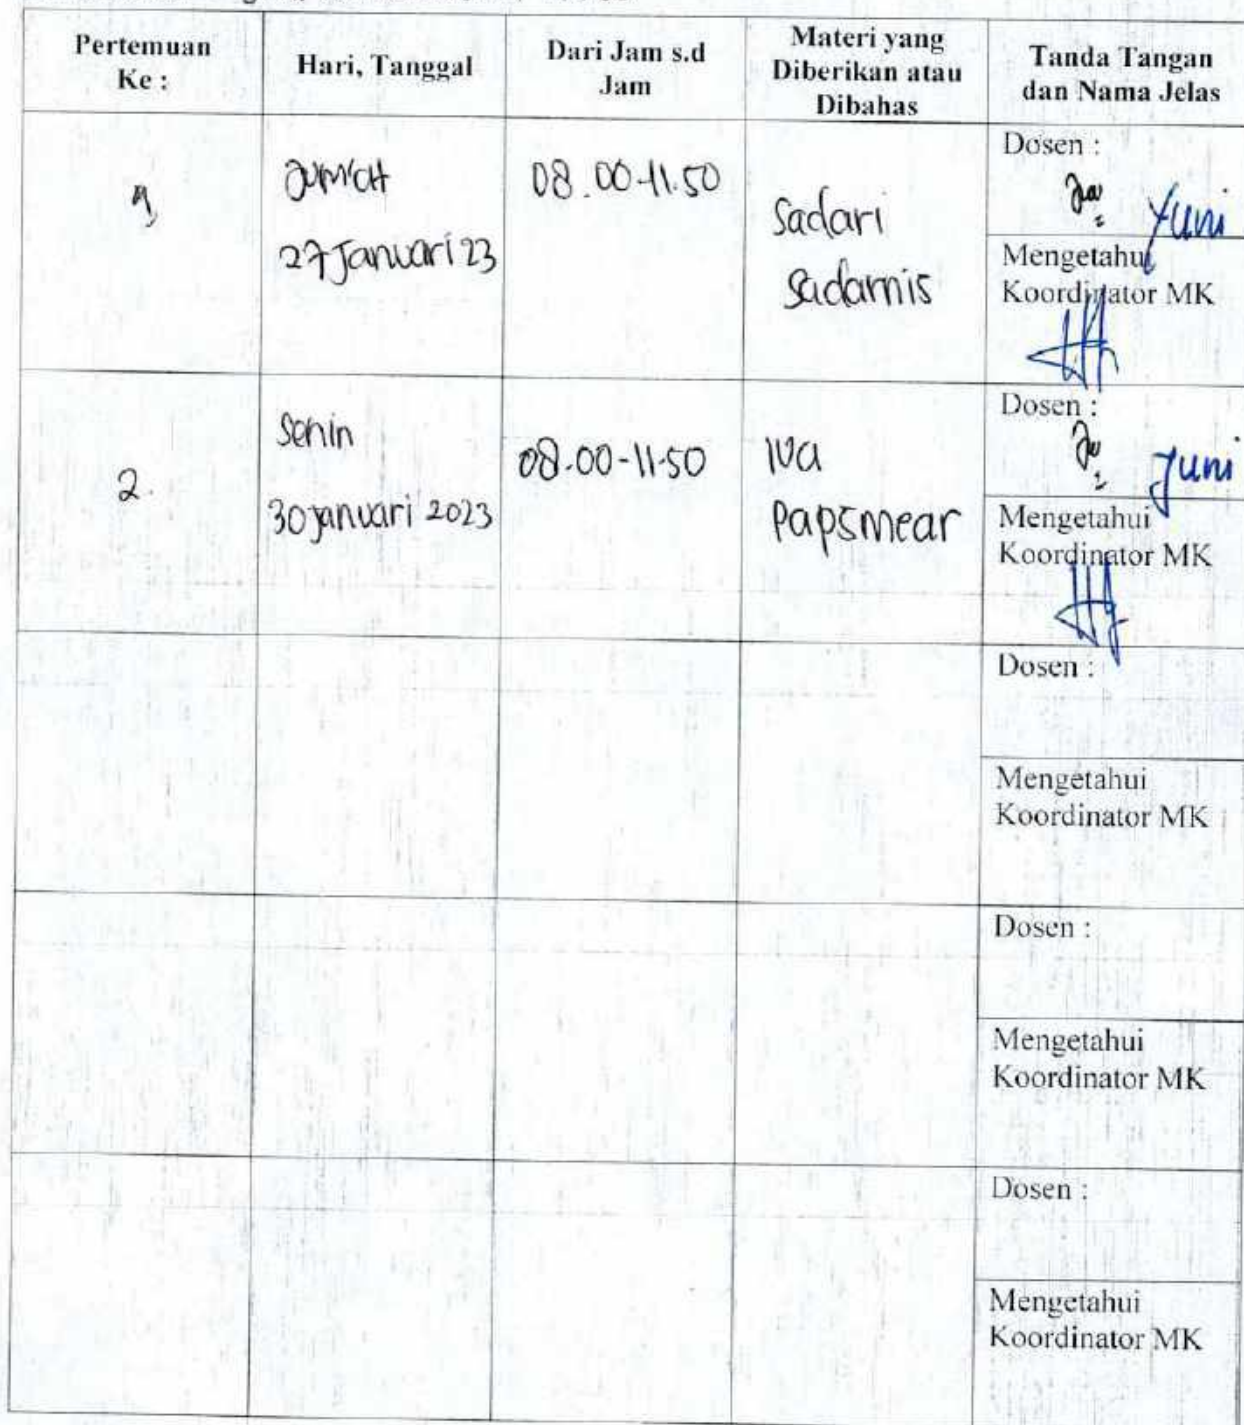 Pertemuan
Ke :
Hari, Tanggal
Dari Jam s.d
Jam
Materi yang
Diberikan atau
Dibahas
Tanda Tangan
dan Nama Jelas
1.
Jum'at
27 Januari 23
08.00-11.50
Sadari
Sadarnis
Dosen :
Yuni
Mengetahui
Koordinator MK
2.
Senin
30 Januari 2023
08.00-11.50
IVa
Papsmear
Dosen :
Yuni
Mengetahui
Koordinator MK
Dosen :
Mengetahui
Koordinator MK
Dosen :
Mengetahui
Koordinator MK
Dosen :
Mengetahui
Koordinator MK